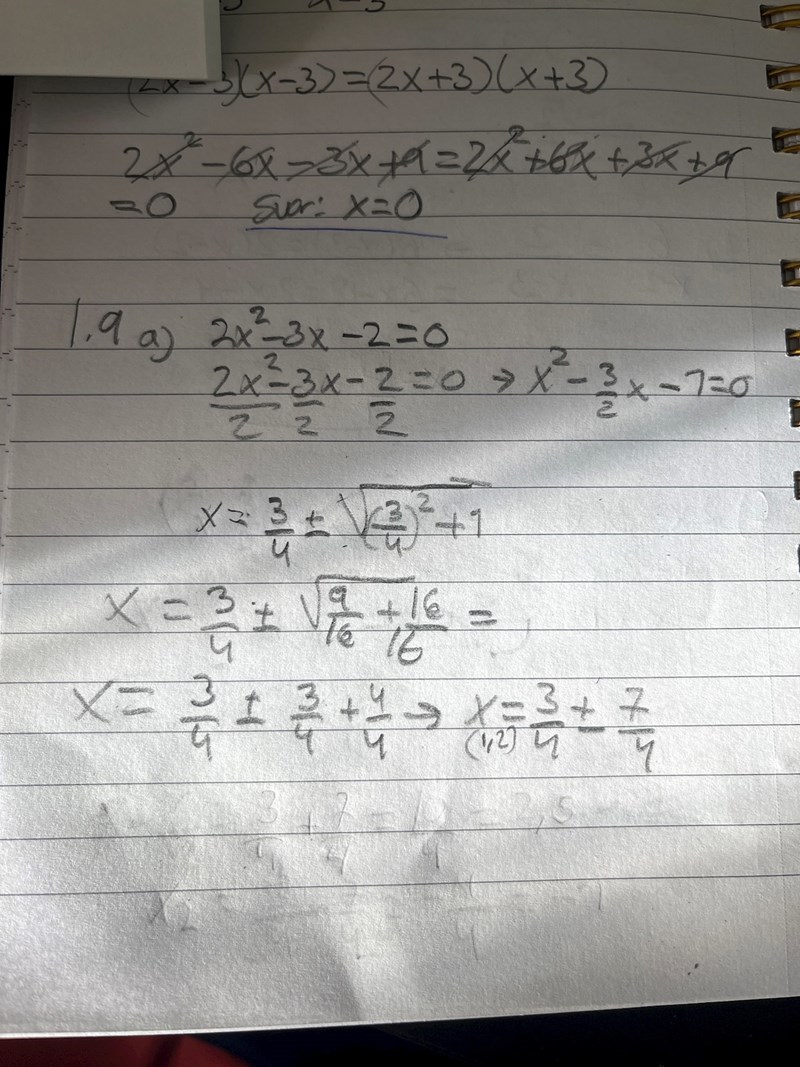 (2x-3)(x-3)=(2x+3)(x+3)
2x²-6x-3x+9=2x²+6x+3x+9
=0 Svar: x=0
1.9 a) 2x²-3x-2=0
2x²/2-3/2x-2/2=0 → x²-3/2x-1=0
x=3/4±√((3/4)²+1)
x=3/4±√(9/16+16/16)=
x=3/4±3/4+4/4→x(1,2)=3/4±7/4
3/4+7/4=10/4=2,5